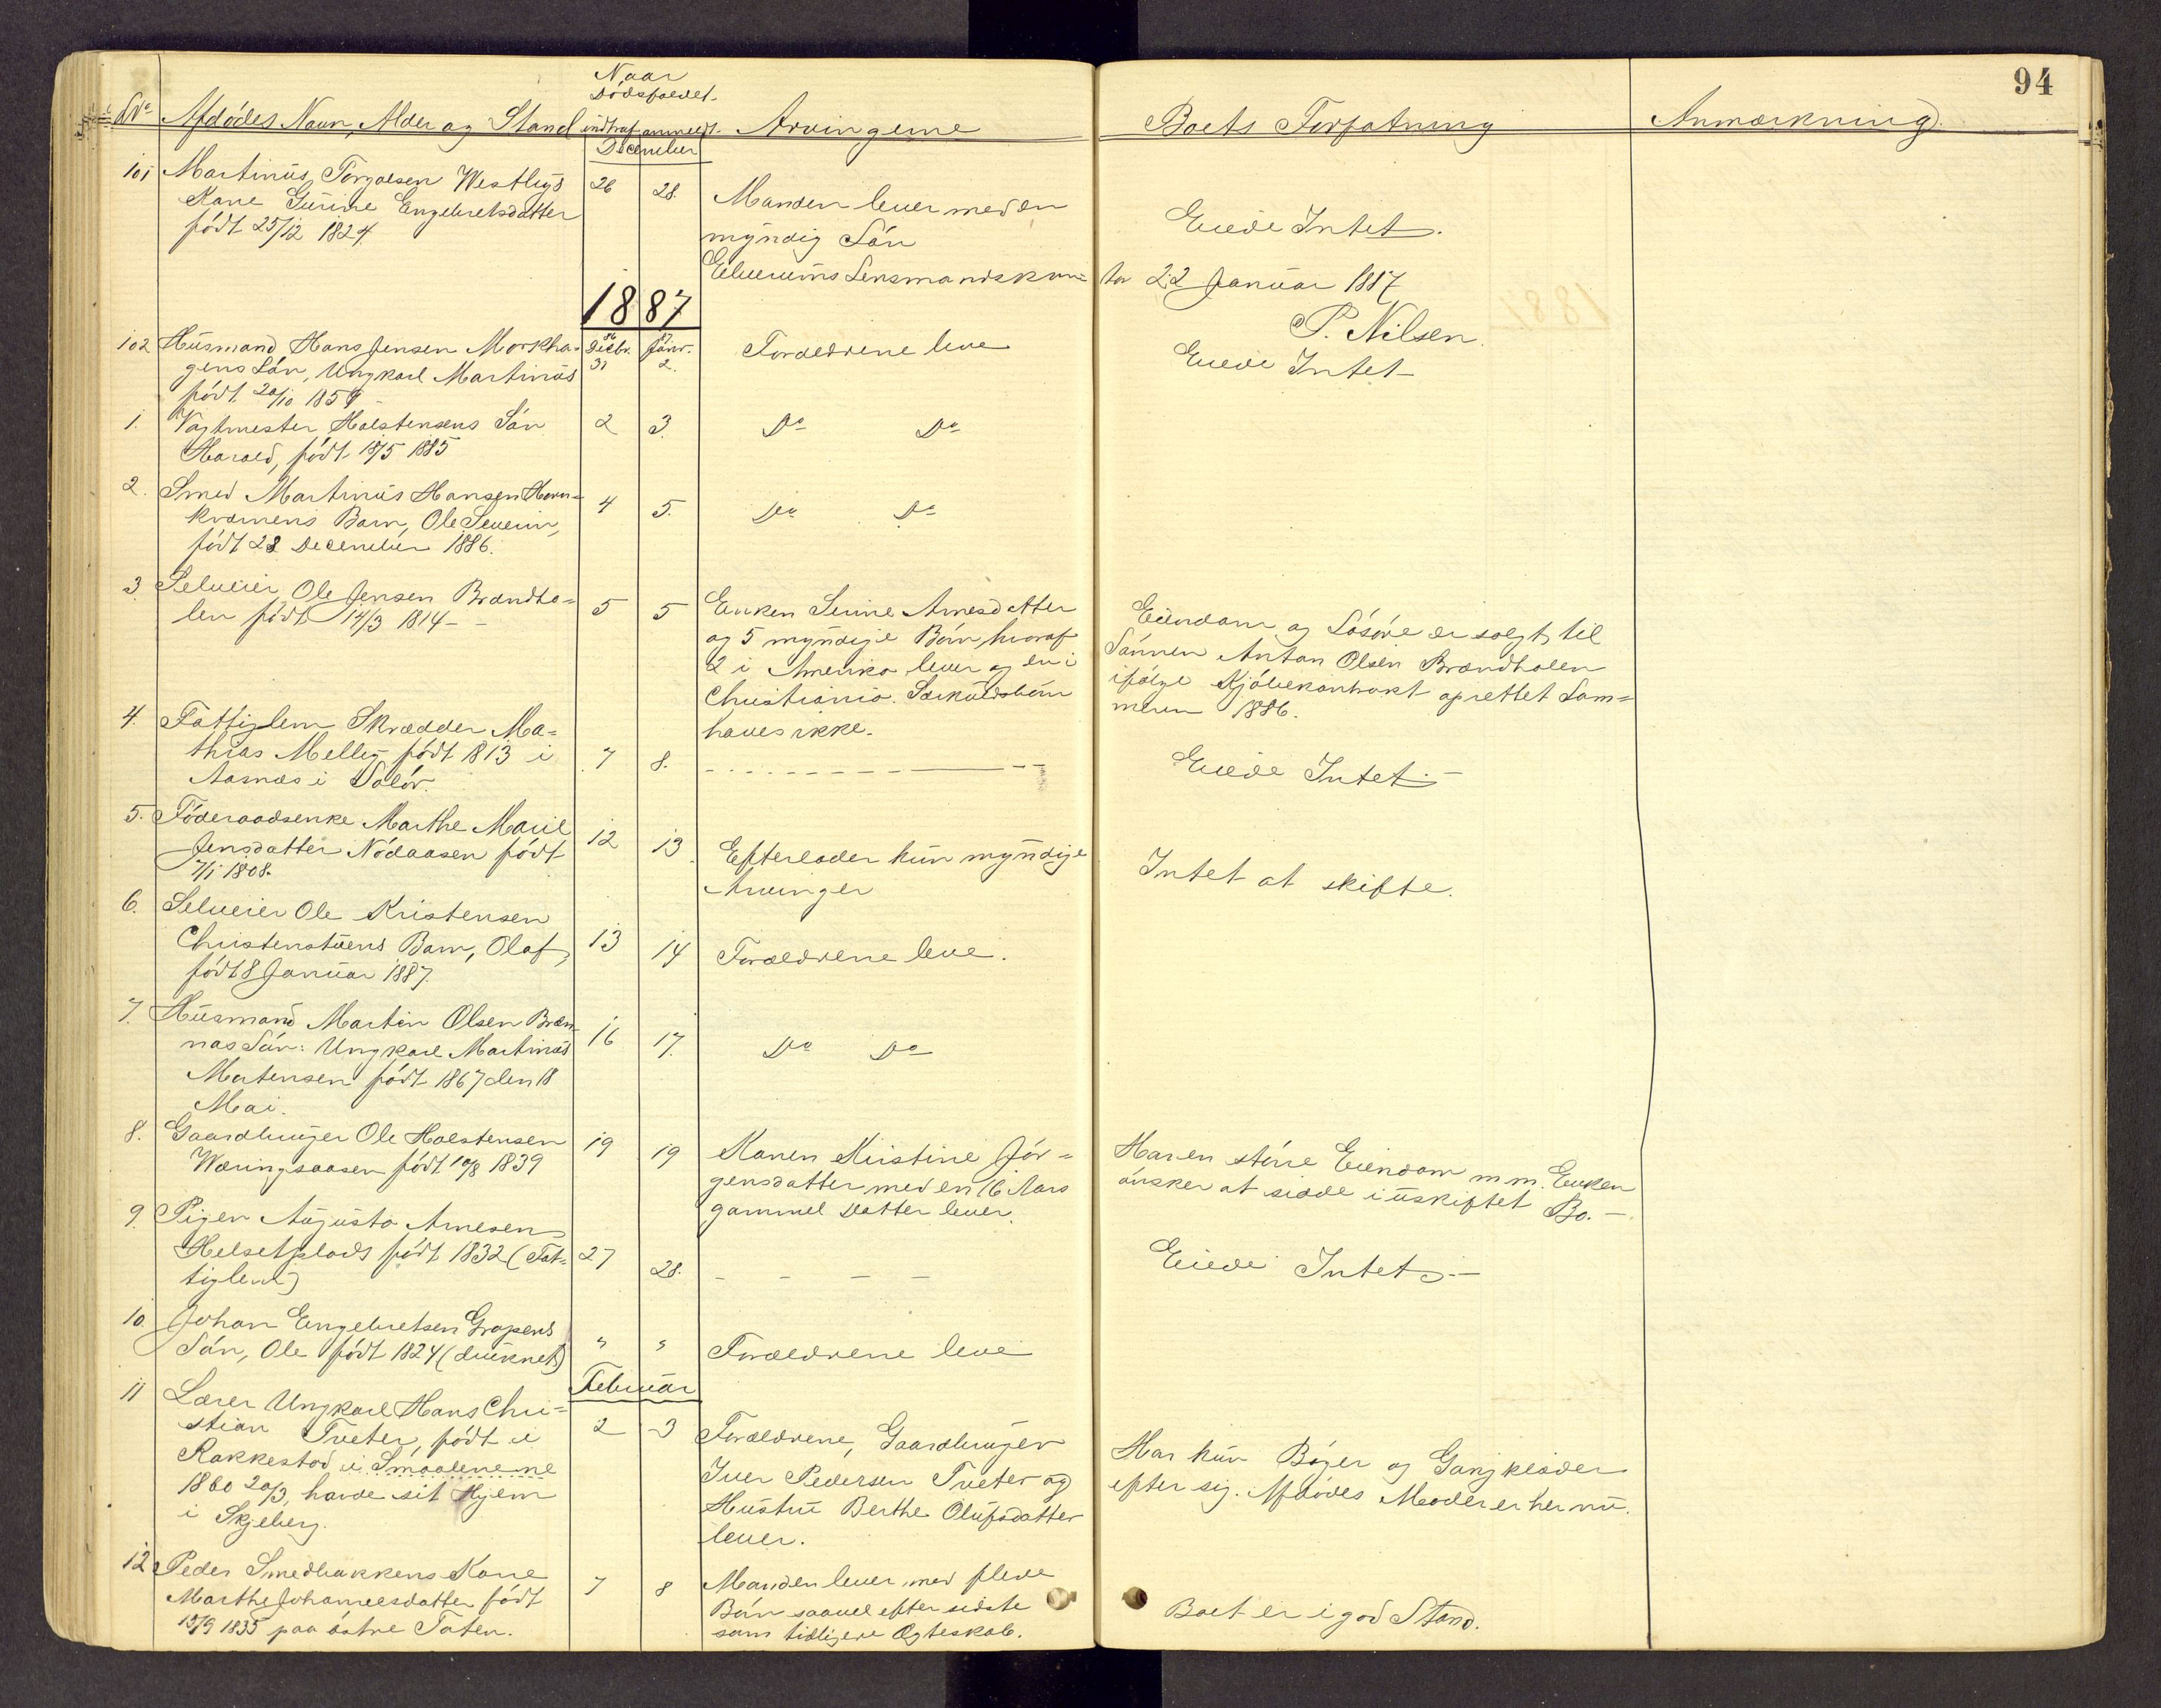 94
No Afdødes Navn, Alder og Stand Naar Dødsfaldet indtraf anmeldt. Arvingerne Boets Forfatning Anmærkning.
December
101 Martinus Torgalsen Westbys 26 28. Manden lever med en
Kone Gurine Engebretsdatter myndig Søn Eiede Intet.
født 25/12 1824
Elverums Lensmandskon= tor 22 Januar 1887
P. Nilsen
1887
102 Husmand Hans Jensen Morkha= 86 Decbr. 31 87 Janr. 2. Forældrene leve Eiede Intet
gens Søn, Ungkarl Martinus
født 20/10 185
1. Vagtmester Holstensens Søn 2 3. Do Do
Harald, født 18/5 1885
2. Smed Martinus Hansen Horn= 4 5. Do Do
kvamens Barn, Ole Severin,
født 28 December 1886.
3. Selveier Ole Jensen Brændho= 5 5 Enken Serine Arnesdatter Eiendom og Løsøre er solgt til
len født 14/3 1814 - - og 5 myndige Børn, hvoraf Sønnen Anton Olsen Brændholen
2 i Amerika lever og en i ifølge Kjøbekontrakt oprettet Som=
Christiania. Særkuldsbørn meren 1886.
haves ikke.
4. Fattiglem Skrædder Ma= 7 8. - - - - Eiede Intet. -
thias Melby født 1813 i
Aasnæs i Solør.
5. Føderaadsenke Marthe Marie 12 13 Efterlader kun myndige Intet at skifte.
Jensdatter Nødaasen født Arvinger
7/1 1808.
6. Selveier Ole Kristensen 13 14 Forældrene leve.
Christenstuens Barn, Olaf,
født 8 Januar 1887.
7. Husmand Martin Olsen Bræn= 16 17. Do Do
nas Søn: Ungkarl Martinus
Martensen født 1867 den 18
Mai.
8. Gaardbruger Ole Holstensen 19 19 Konen Kirstine Jør= Har en større Eiendom m.m. Enken
Wæringsaasen født 10/8 1839 gensdatter med en 16 Aars ønsker at sidde i uskiftet Bo. -
gammel Datter lever.
9. Pigen Augusta Arnesen 27 28. - - - - Eiede Intet. -
Helsetplads født 1832 (Fat=
tiglem)
10. Johan Engebretsen Grapens " " Forældrene leve
Søn, Ole født 1824 (druknet)
Februar
11 Lærer Ungkarl Hans Chri= 2 3 Forældrene, Gaardbruger Har kun Bøger og Gangklæder
stian Tveter, født i Iver Pedersen Tveter og efter sig. Afdødes Moder er her nu.
Rakkestad i Smaalenene Hustru Berthe Olufsdatter
1860 20/3, havde sit Hjem lever.
i Skjeberg.
12 Peder Smedbakkens Kone 7 8 Manden lever med flere Boet er i god Stand.
Marthe Johannesdatter født Børn saavel efter sidste
15/9 1835 paa østre Toten. som tidligere Ægteskab.